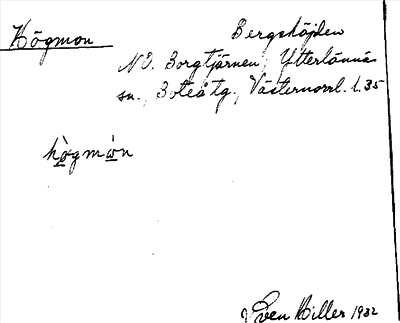 Högmon
Bergshöjden
NÖ. Borgtjärnen, Ytterlännäs
sn., Boteå tg., Västernorrl. l. 35
hògmòn
Sven Hiller 1932